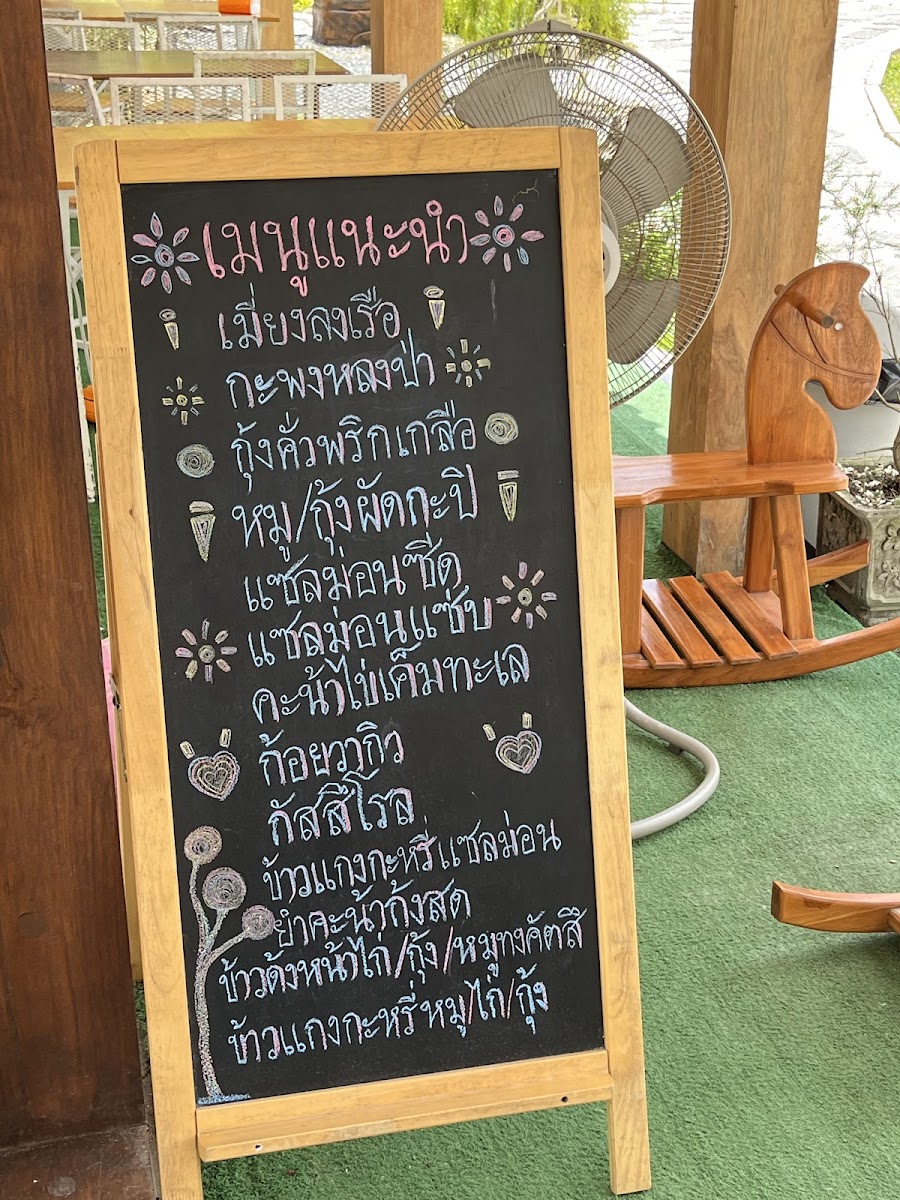 เมนูแนะนำ
เมี่ยงลงเรือ
กะพงหลงป่า
กุ้งคั่วพริกเกลือ
หมู/กุ้งผัดกะปิ
แซลม่อนซีด
แซลม่อนแซ่บ
คะน้าไข่เค็มทะเล
ก้อยวากิว
คัสสึโรล
ข้าวแกงกะหรี่แซลม่อน
ยำคะน้ากุ้งสด
ข้าวด้งหน้าไก่/กุ้ง/หมูทงคัตสึ
ข้าวแกงกะหรี่หมู/ไก่/กุ้ง